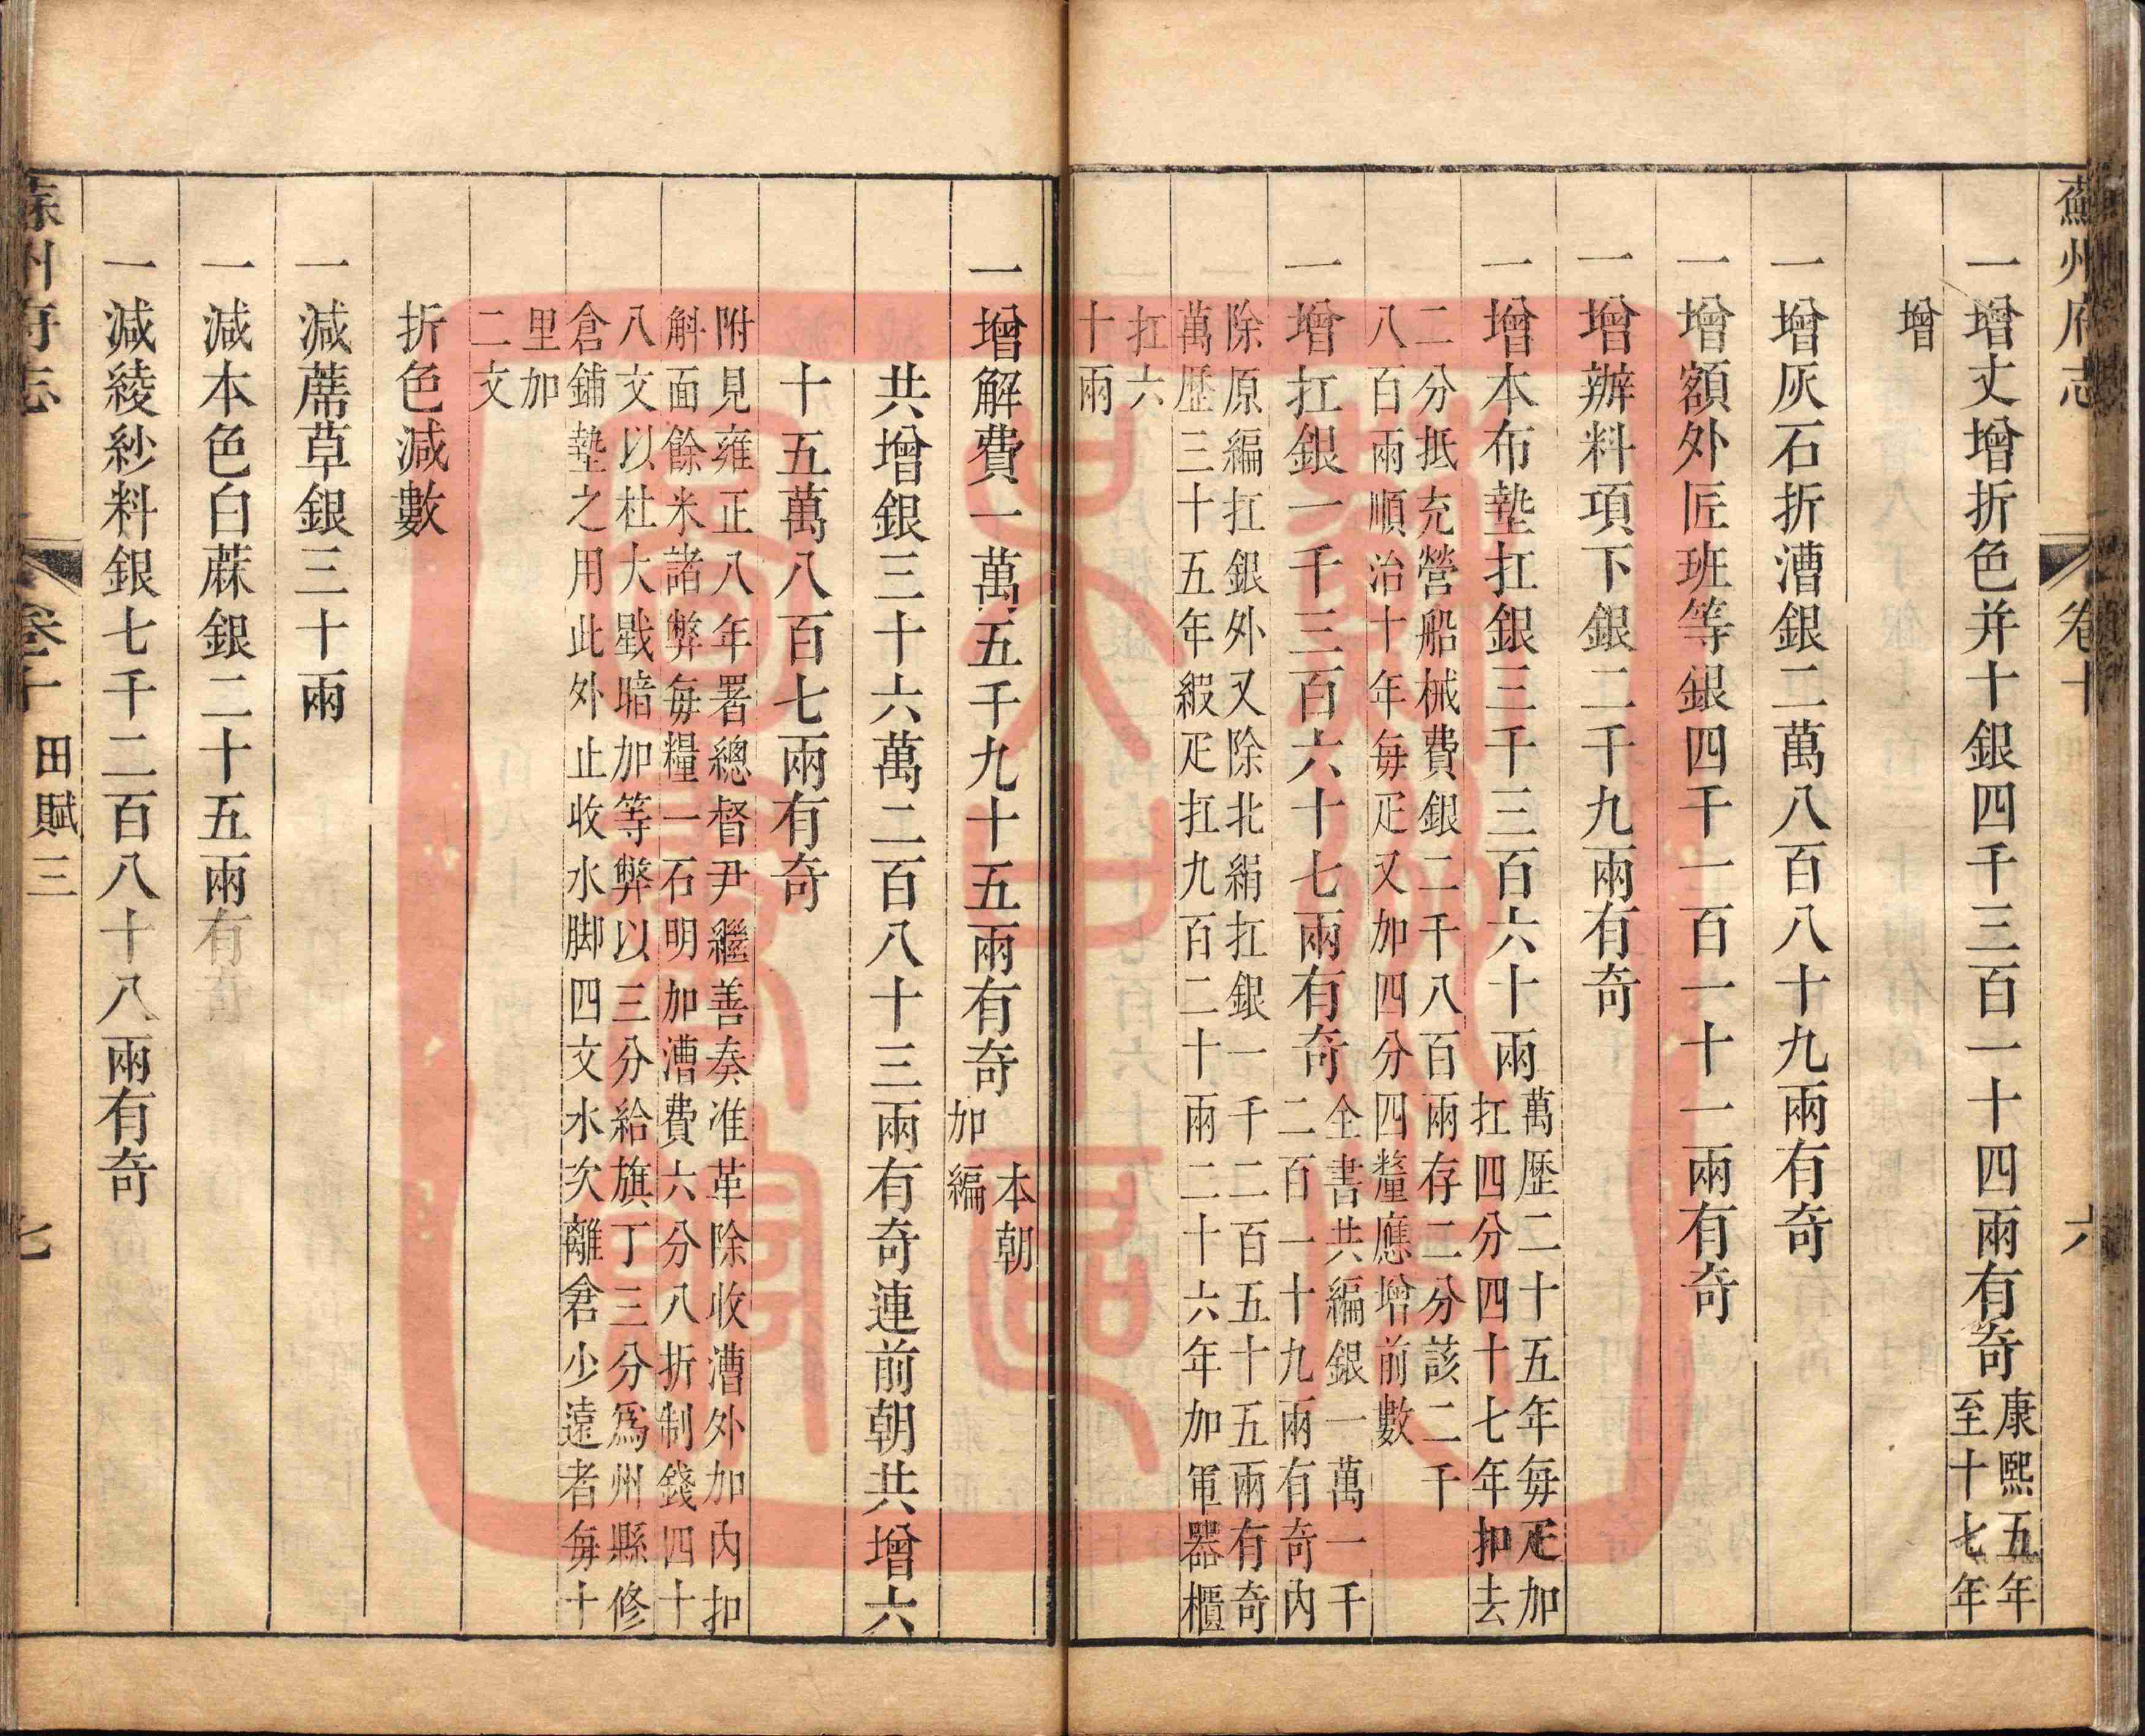 蘇州府志 卷十 六
一增丈增折色并十銀四千三百一十四兩有奇康熙五年至十七年
增
一增灰石折漕銀二萬八百八十九兩有奇
一增額外匠班等銀四千一百一十一兩有奇
一增辦料項下銀二千九兩有奇
一增本布墊扛銀三千三百六十兩萬歷二十五年每疋加扛四分四十七年扣去
二分抵充營船械費銀二千八百兩存二分該二千
八百兩順治十年每疋又加四分四釐應增前數
一增扛銀一千三百六十七兩有奇全書共編銀一萬一千二百一十九兩有奇內
除原編扛銀外又除北絹扛銀一千二百五十五兩有奇
萬歷三十五年緞疋扛九百二十兩二十六年加軍器櫃
扛六
十兩
一增解費一萬五千九十五兩有奇本朝加編
共增銀三十六萬二百八十三兩有奇連前朝共增六
十五萬八百七兩有奇
附見雍正八年署總督尹繼善奏准革除收漕外加內扣
斛面餘米諸弊每糧一石明加漕費六分八折制錢四十
八文以杜大戥暗加等弊以三分給旗丁三分爲州縣修
倉鋪墊之用此外止收水脚四文水次離倉少遠者每十
里加
二文
折色減數
一減蓆草銀三十兩
一減本色白蔴銀二十五兩有
一減綾紗料銀七千二百八十八兩有奇
蘇州府志 卷十 田賦三 七